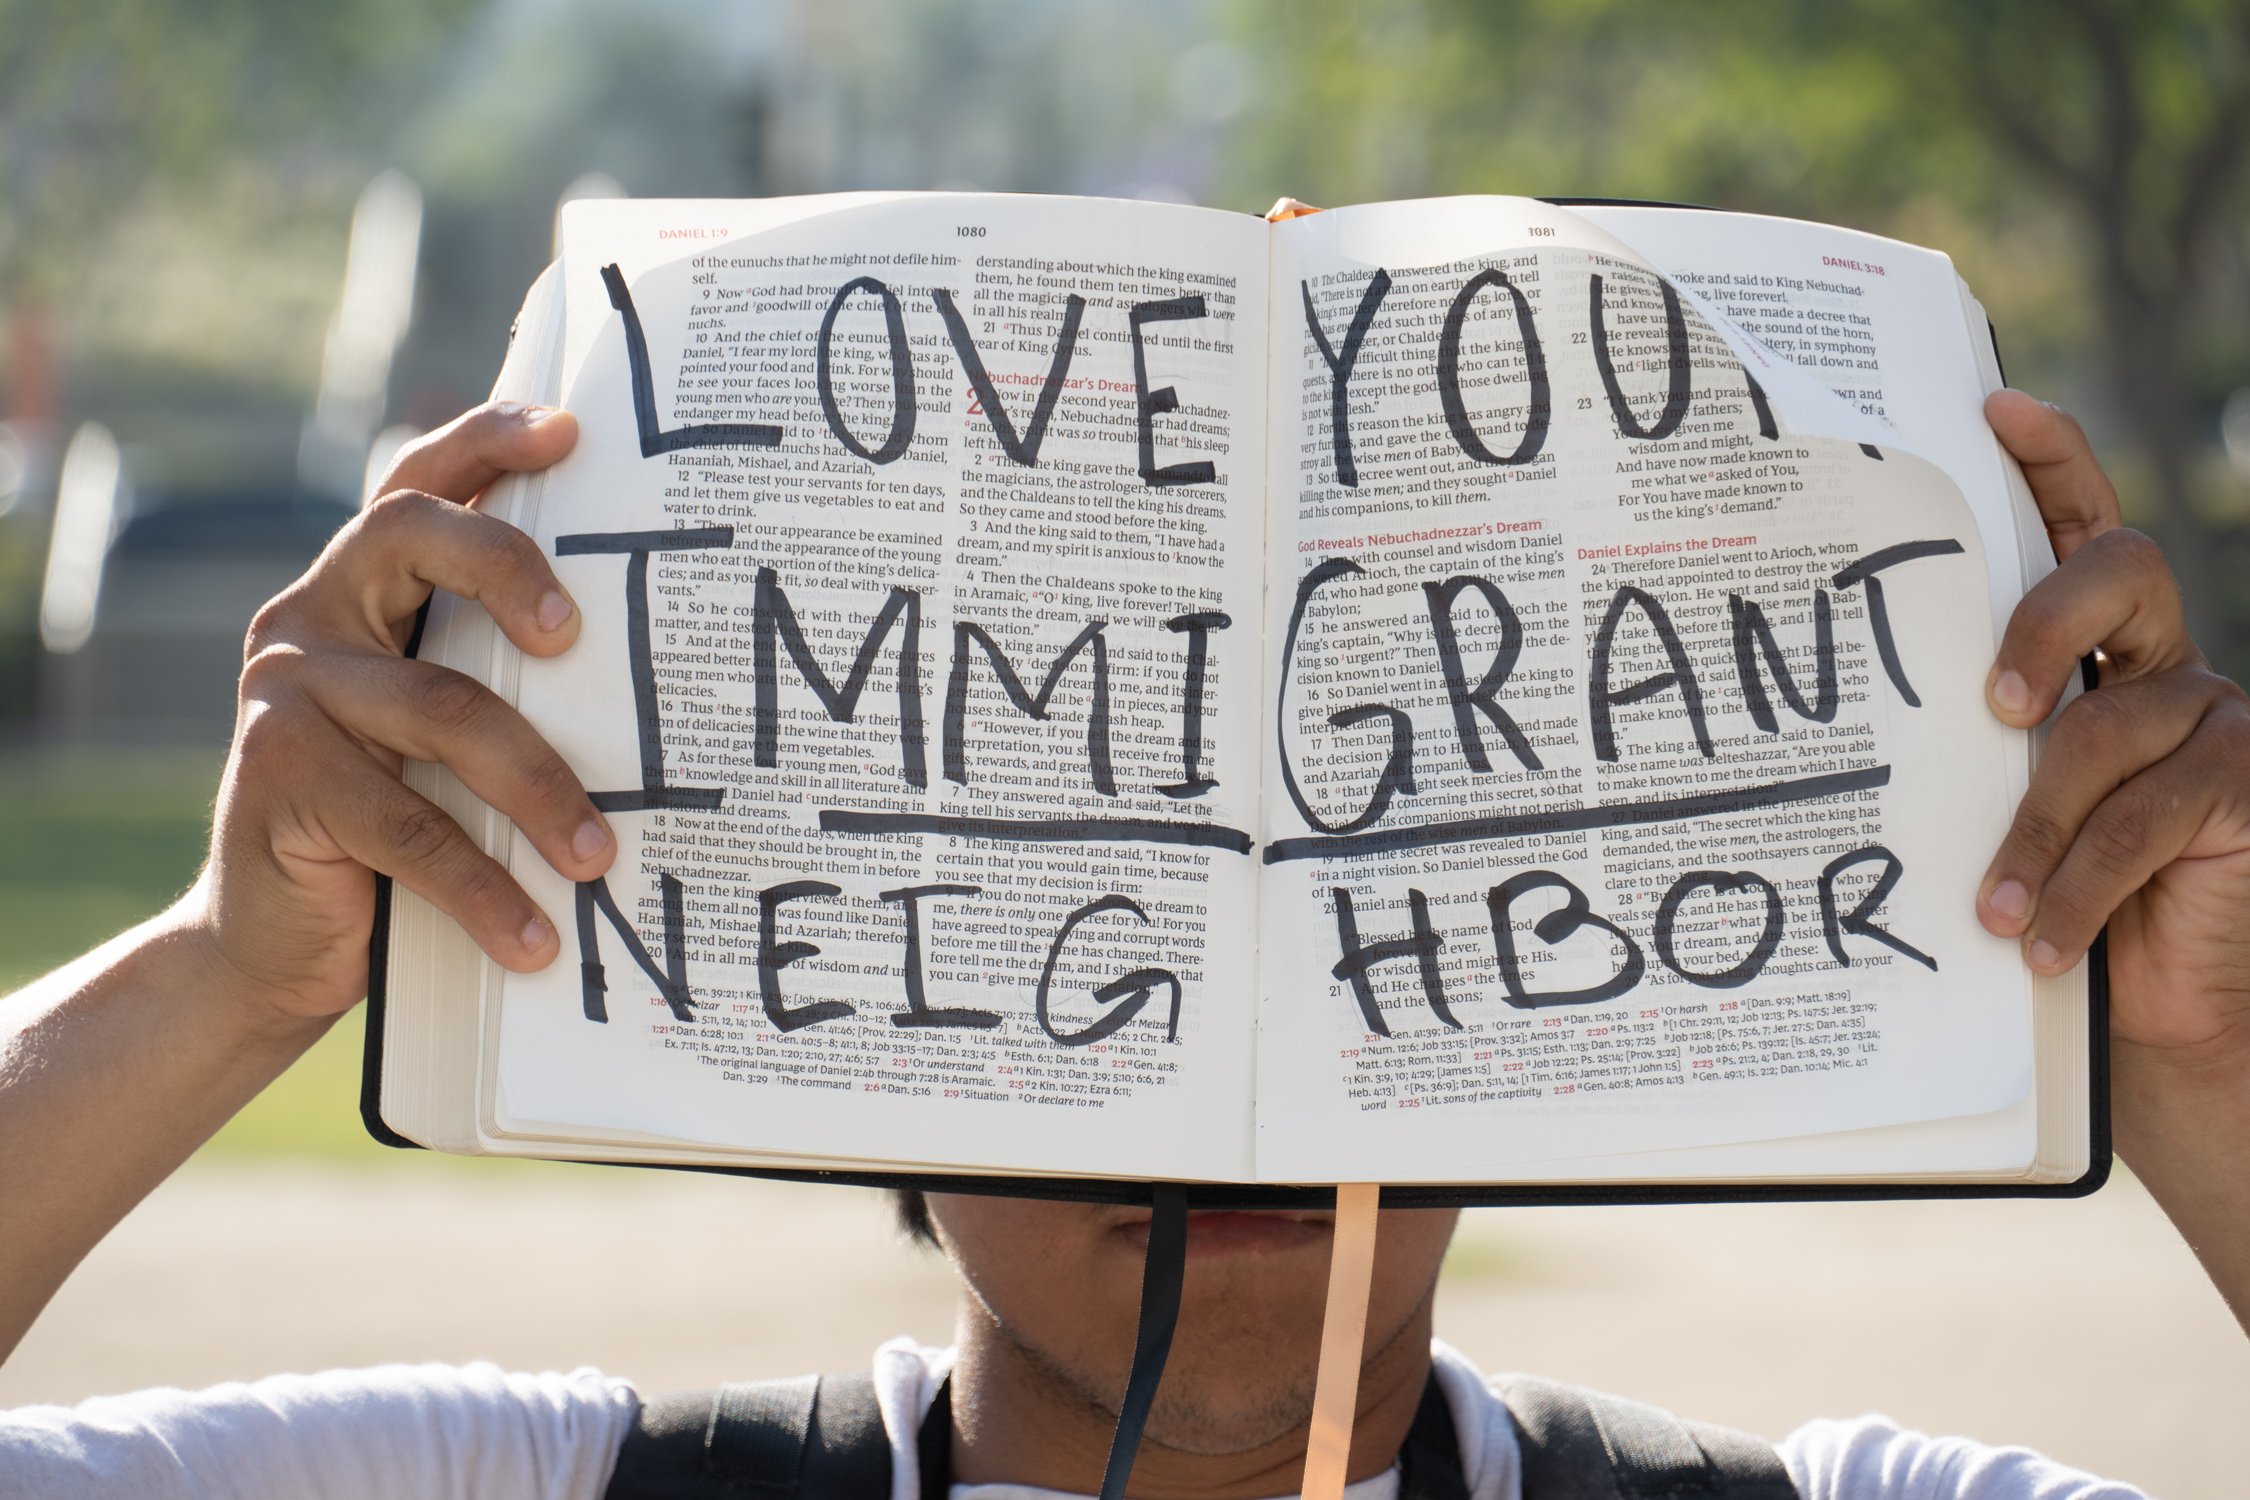 LOVE YOUR
IMMIGRANT
NEIGHBOR
DANIEL 1:9
1080
of the eunuchs that he might not defile him-
self.
9 Now aGod had brought Daniel into the
favor and 1goodwill of the chief of the eu-
nuchs.
10 And the chief of the eunuchs said to
Daniel, “I fear my lord the king, who has ap-
pointed your food and drink. For why should
he see your faces looking worse than the
young men who are your age? Then you would
endanger my head before the king.”
11 So Daniel said to 1the steward whom
the chief of the eunuchs had set over Daniel,
Hananiah, Mishael, and Azariah,
12 “Please test your servants for ten days,
and let them give us vegetables to eat and
water to drink.
13 “Then let our appearance be examined
before you, and the appearance of the young
men who eat the portion of the king’s delica-
cies; and as you see fit, so deal with your ser-
vants.”
14 So he consented with them in this
matter, and tested them ten days.
15 And at the end of ten days their features
appeared better and fatter in flesh than all the
young men who ate the portion of the king’s
delicacies.
16 Thus 1the steward took away their por-
tion of delicacies and the wine that they were
to drink, and gave them vegetables.
17 As for these four young men, aGod gave
them bknowledge and skill in all literature and
wisdom; and Daniel had cunderstanding in
all visions and dreams.
18 Now at the end of the days, when the king
had said that they should be brought in, the
chief of the eunuchs brought them in before
Nebuchadnezzar.
19 Then the king interviewed them, and
among them all none was found like Daniel,
Hananiah, Mishael, and Azariah; therefore
athey served before the king.
20 And in all matters of wisdom and un-
derstanding about which the king examined
them, he found them ten times better than
all the magicians and astrologers who were
in all his realm.
21 aThus Daniel continued until the first
year of King Cyrus.
Nebuchadnezzar’s Dream
2 Now in the second year of Nebuchadnez-
zar’s reign, Nebuchadnezzar had dreams;
aand his spirit was so troubled that bhis sleep
left him.
2 aThen the king gave the command to call
the magicians, the astrologers, the sorcerers,
and the Chaldeans to tell the king his dreams.
So they came and stood before the king.
3 And the king said to them, “I have had a
dream, and my spirit is anxious to 1know the
dream.”
4 Then the Chaldeans spoke to the king
in Aramaic, a“O1 king, live forever! Tell your
servants the dream, and we will give the in-
terpretation.”
The king answered and said to the Chal-
deans, “My 1decision is firm: if you do not
make known the dream to me, and its inter-
pretation, you shall be acut in pieces, and your
houses shall be made an ash heap.
6 a“However, if you tell the dream and its
interpretation, you shall receive from me
gifts, rewards, and great honor. Therefore tell
me the dream and its interpretation.”
7 They answered again and said, “Let the
king tell his servants the dream, and we will
give its interpretation.”
8 The king answered and said, “I know for
certain that you would gain time, because
you see that my decision is firm:
9 “if you do not make known the dream to
me, there is only one decree for you! For you
have agreed to speak lying and corrupt words
before me till the 1time has changed. There-
fore tell me the dream, and I shall know that
you can 2give me its interpretation.”
1081
DANIEL 3:18
10 The Chaldeans answered the king, and
said, “There is not a man on earth who can tell
king’s matter; therefore no king, lord, or
has ever asked such things of any ma-
astrologer, or Chaldean.
11 difficult thing that the king re-
quests, and there is no other who can tell it
to the king except the gods, whose dwelling
is not with flesh.”
12 For this reason the king was angry and
very furious, and gave the command to de-
stroy all the wise men of Babylon.
13 So the decree went out, and they began
killing the wise men; and they sought aDaniel
and his companions, to kill them.
God Reveals Nebuchadnezzar’s Dream
14 Then with counsel and wisdom Daniel
answered Arioch, the captain of the king’s
guard, who had gone out to kill the wise men
of Babylon;
15 he answered and said to Arioch the
king’s captain, “Why is the decree from the
king so 1urgent?” Then Arioch made the de-
cision known to Daniel.
16 So Daniel went in and asked the king to
give him time, that he might tell the king the
interpretation.
17 Then Daniel went to his house, and made
the decision known to Hananiah, Mishael,
and Azariah, his companions,
18 athat they might seek mercies from the
God of heaven concerning this secret, so that
Daniel and his companions might not perish
with the rest of the wise men of Babylon.
19 Then the secret was revealed to Daniel
ain a night vision. So Daniel blessed the God
of heaven.
20 Daniel answered and said:
a“Blessed be the name of God
forever and ever,
bFor wisdom and might are His.
21 And He changes athe times
and the seasons;
bHe removes
raises up
He gives
And know
have understan
22 aHe reveals deep and
bHe knows what is in
And clight dwells with
23 “I thank You and praise
O God of my fathers;
You have given me
wisdom and might,
And have now made known to
me what we aasked of You,
For You have made known to
us the king’s 1demand.”
Daniel Explains the Dream
24 Therefore Daniel went to Arioch, whom
the king had appointed to destroy the wise
men of Babylon. He went and said thus to
him: “Do not destroy the wise men of Bab-
ylon; take me before the king, and I will tell
the king the interpretation.”
25 Then Arioch quickly brought Daniel be-
fore the king, and said thus to him, “I have
found a man of the 1captives of Judah, who
will make known to the king the interpreta-
tion.”
26 The king answered and said to Daniel,
whose name was Belteshazzar, “Are you able
to make known to me the dream which I have
seen, and its interpretation?”
27 Daniel answered in the presence of the
king, and said, “The secret which the king has
demanded, the wise men, the astrologers, the
magicians, and the soothsayers cannot de-
clare to the king.
28 a“But there is a God in heaven who re-
veals secrets, and He has made known to King
Nebuchadnezzar bwhat will be in the latter
days. Your dream, and the visions of your
head upon your bed, were these:
29 “As for you, O king, thoughts came to your
spoke and said to King Nebuchad-
live forever!
have made a decree that
the sound of the horn,
ltery, in symphony
ll fall down and
own and
of a